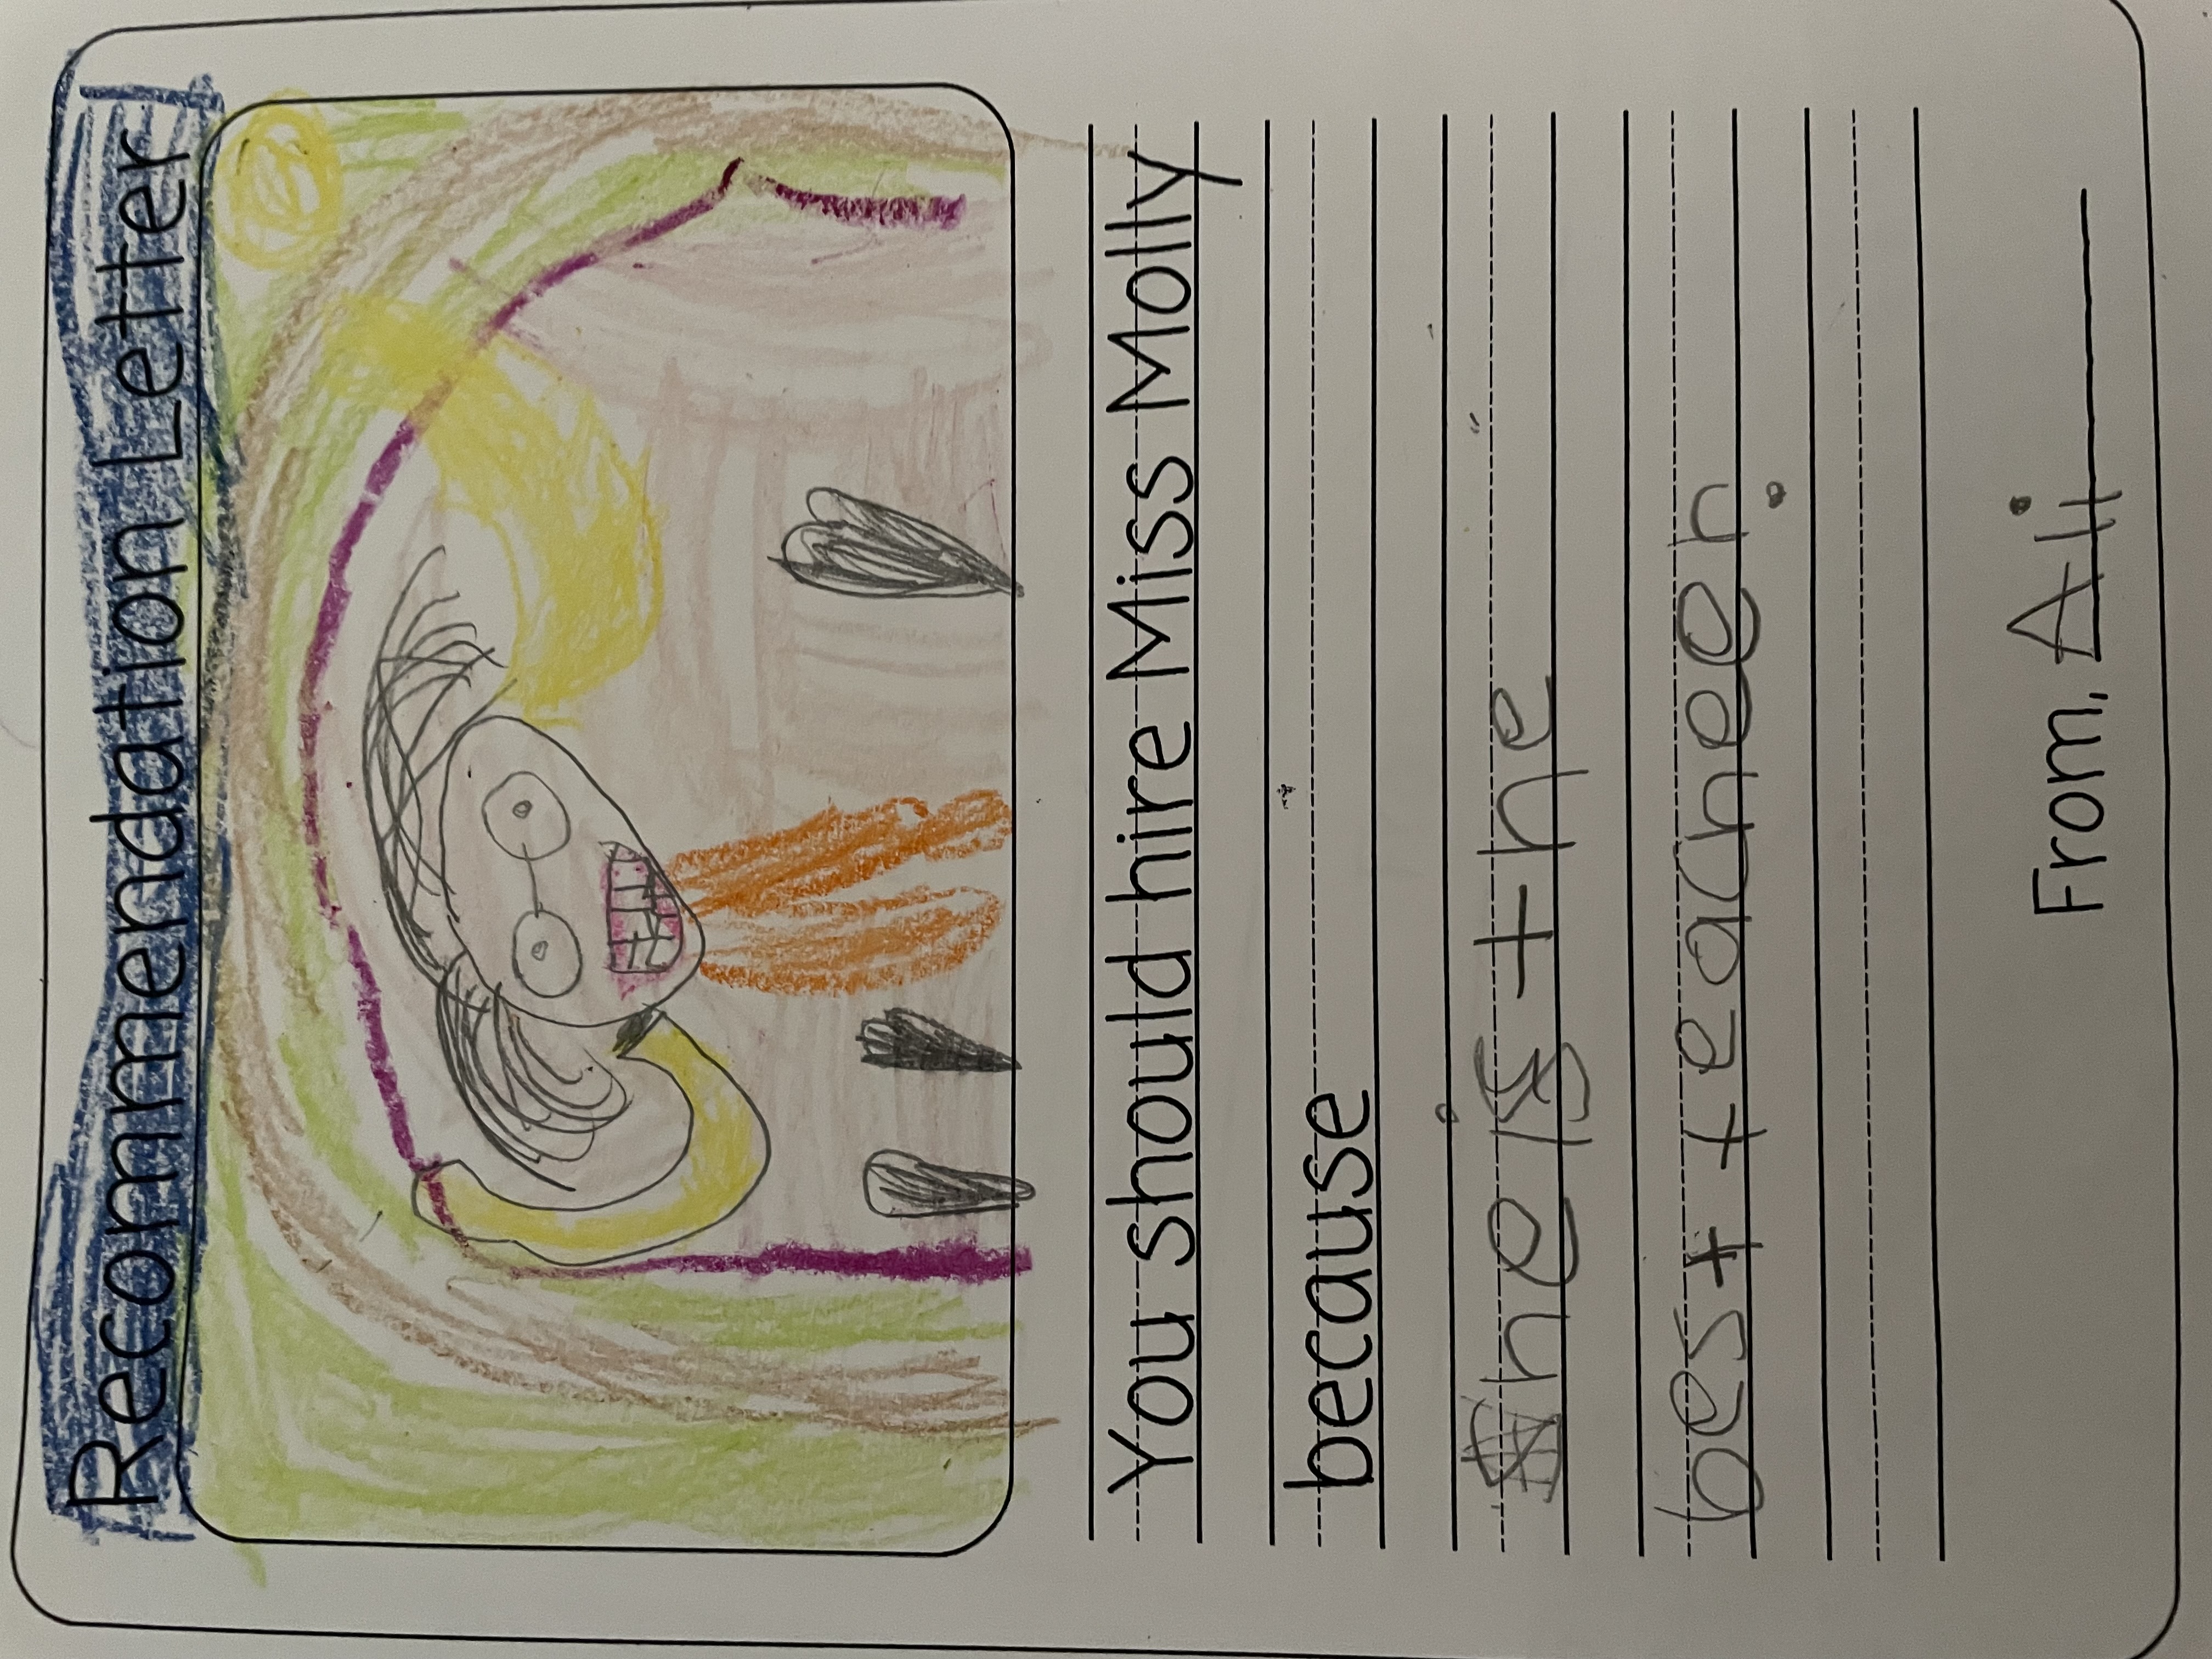 Recommendation Letter
You should hire Miss Molly
because
She is the
best teacheer.
From, Ali